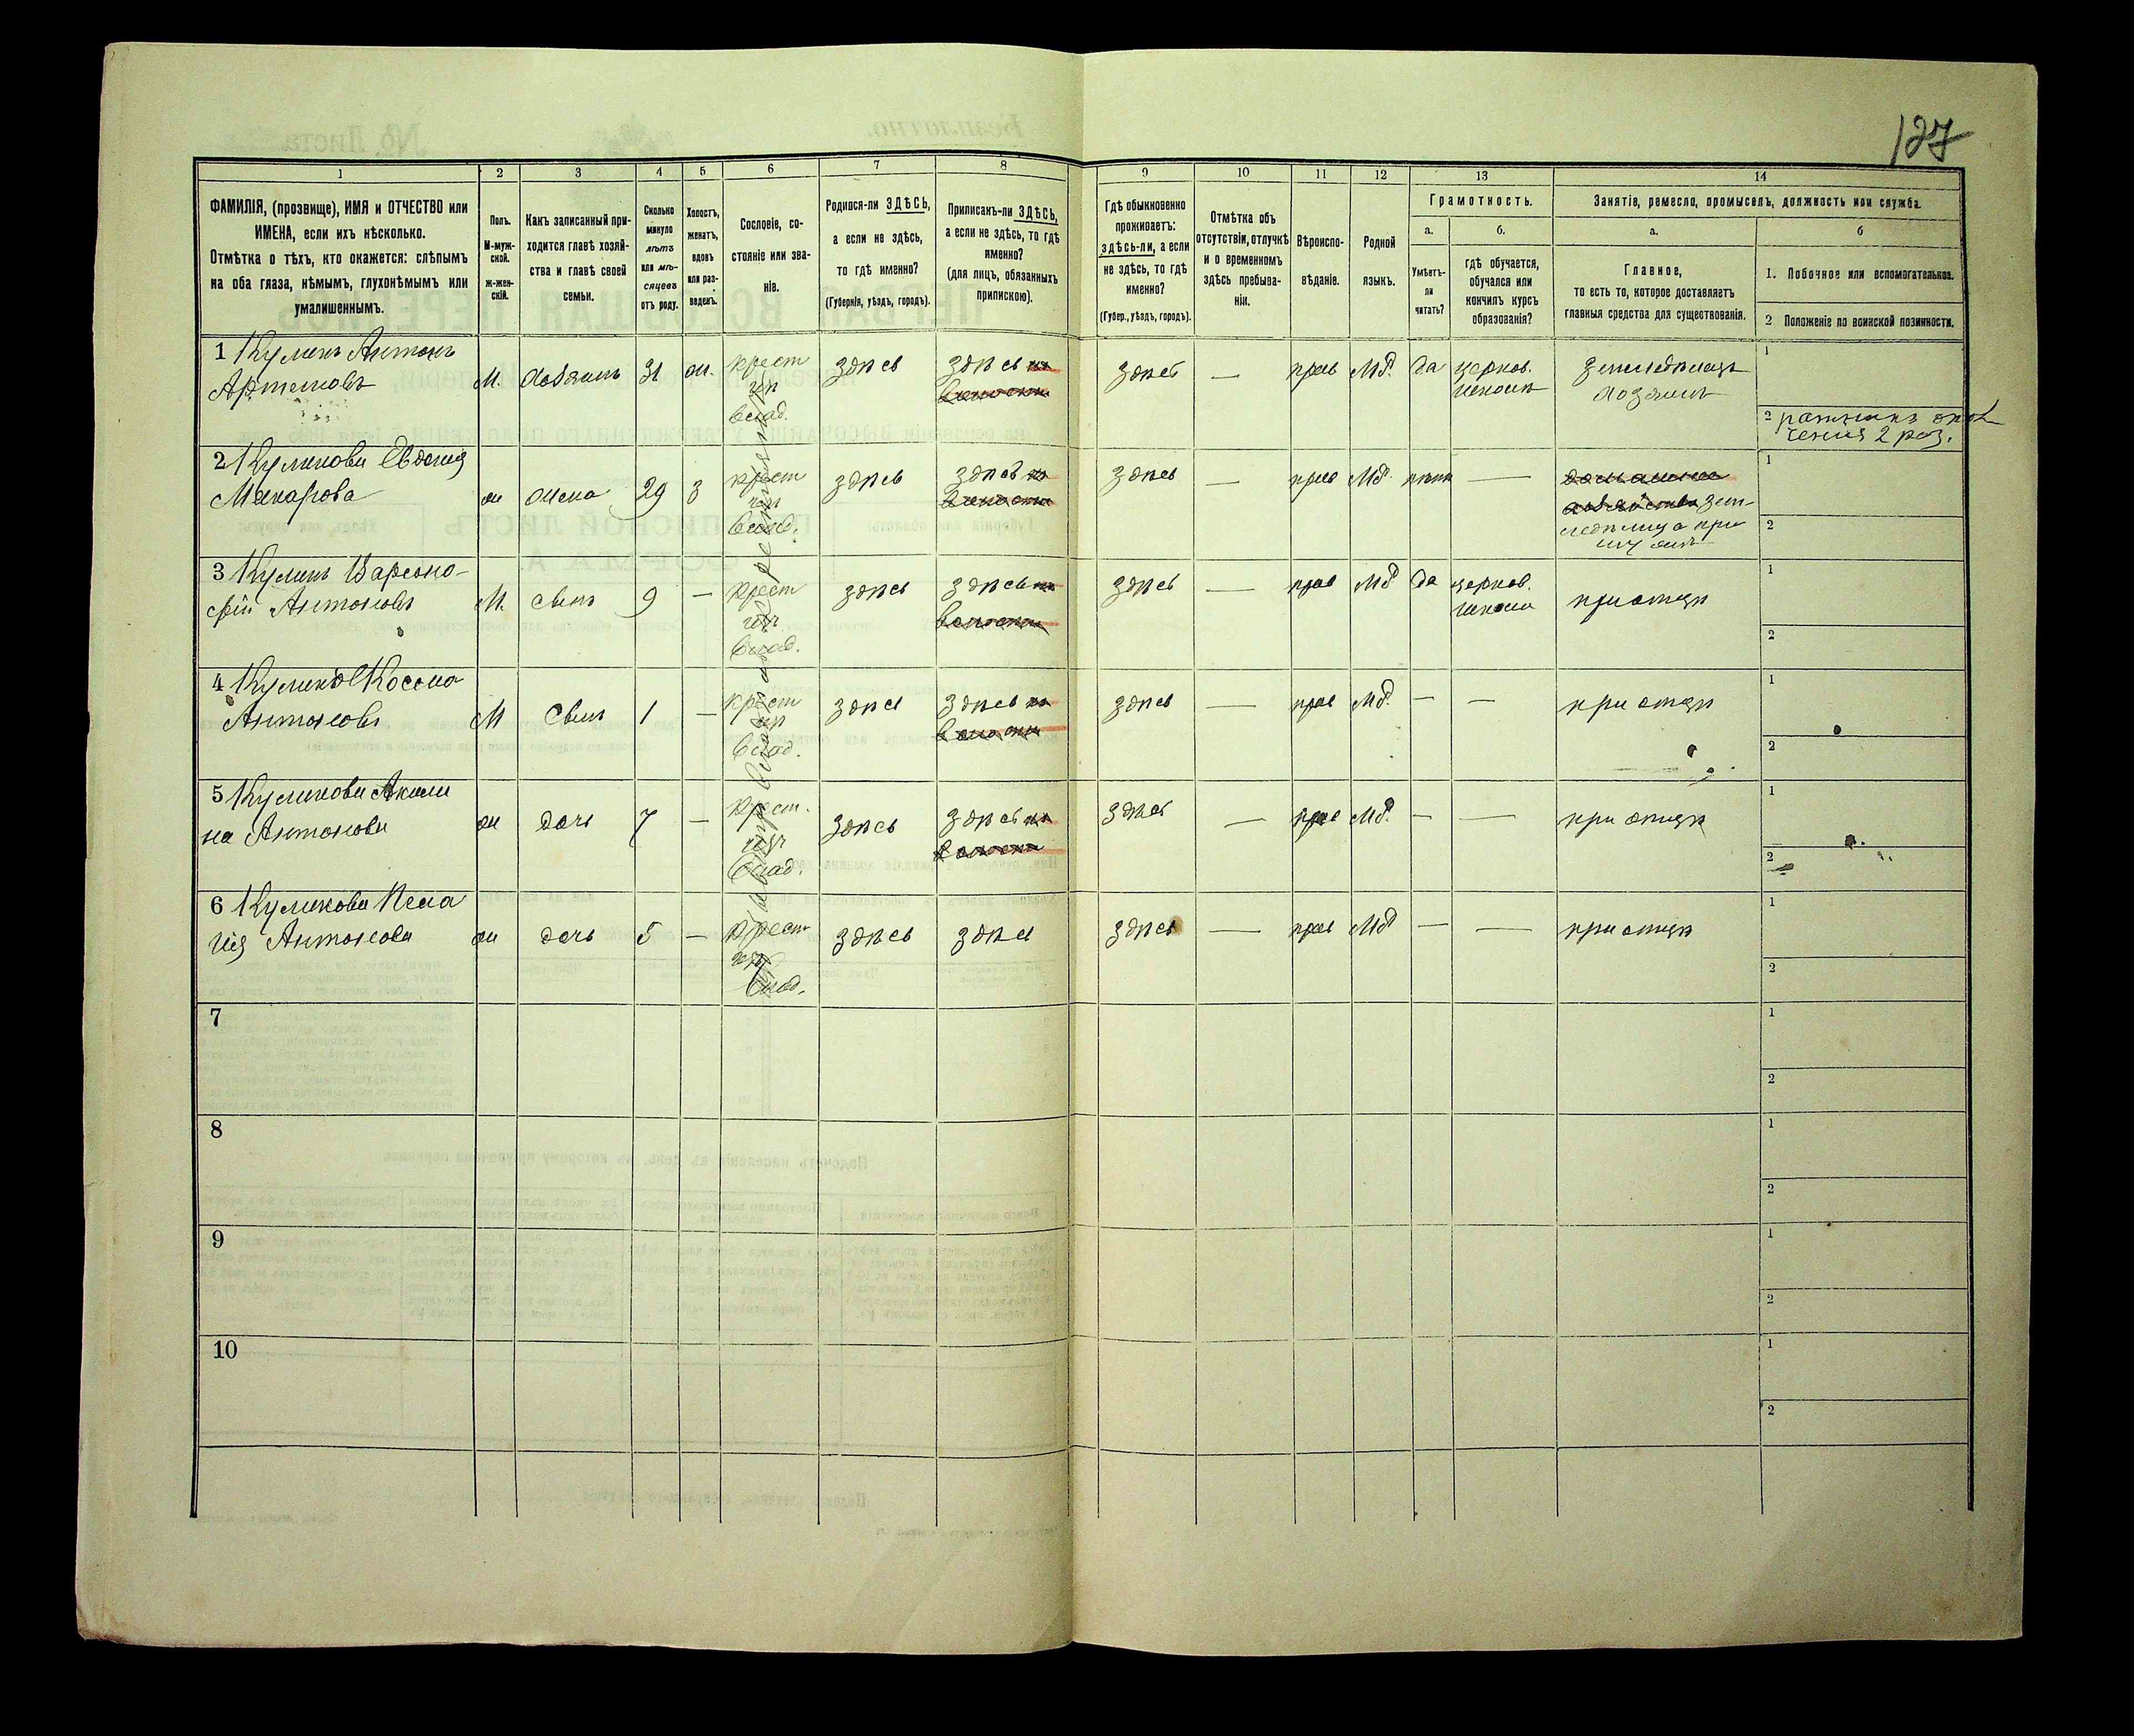 127
1 2 3 4 5 6 7 8 9 10 11 12 13 14
ФАМИЛІЯ, (прозвище), ИМЯ и ОТЧЕСТВО или
ИМЕНА, если ихъ нѣсколько.
Отмѣтка о тѣхъ, кто окажется: слѣпымъ
на оба глаза, нѣмымъ, глухонѣмымъ или
умалишеннымъ.
Полъ.
М-муж-
ской.
Ж-жен-
скій.
Какъ записанный при-
ходится главѣ хозяй-
ства и главѣ своей
семьи.
Сколько
минуло
лѣтъ
или мѣ-
сяцевъ
отъ роду.
Холостъ,
женатъ,
вдовъ
или раз-
веденъ.
Сословіе, со-
стояніе или зва-
ніе.
Родился-ли ЗДѢСЬ,
а если не здѣсь,
то гдѣ именно?
(Губернія, уѣздъ, городъ).
Приписанъ-ли ЗДѢСЬ,
а если не здѣсь, то гдѣ
именно?
(для лицъ, обязанныхъ
припискою).
Гдѣ обыкновенно
проживаетъ:
здѣсь-ли, а если
не здѣсь, то гдѣ
именно?
(Губер., уѣздъ, городъ).
Отмѣтка объ
отсутствіи, отлучкѣ
и о временномъ
здѣсь пребыва-
ніи.
Вѣроиспо-
вѣданіе.
Родной
языкъ.
Грамотность.
а.
Умѣетъ-
ли
читать?
б.
гдѣ обучается,
обучался или
кончилъ курсъ
образованія?
Занятіе, ремесло, промыселъ, должность или служба.
а.
Главное,
то есть то, которое доставляетъ
главныя средства для существованія.
б
1. Побочное или вспомогательное.
2 Положеніе по воинской повинности.
1 Куликъ Антонъ
Артемовъ
М. хозяинъ 31 ж. крест здѣсь здѣсь здѣсь — прав Мд. да церков. земледѣлецъ
влад. школѣ хозяинъ
1
2 ратникъ опол
ченія 2 раз.
2 Куликова Евдокия
Макарова
ж жена 29 з крест здѣсь здѣсь здѣсь — прав Мд. нѣтъ —
влад. домашнее
хозяйство зем-
ледѣлица при
мужѣ
1
2
3 Куликъ Варсоно-
фій Антоновъ
М. сынъ 9 — крест здѣсь здѣсь здѣсь — прав Мд да церков. при отцѣ
влад. школа
1
2
4 Куликъ Косма
Антоновъ
М сынъ 1 — крест здѣсь здѣсь здѣсь — прав Мд. — — при отцѣ
влад.
1
2
5 Куликова Акили
на Антонова
ж дочь 7 — крест. здѣсь здѣсь здѣсь — прав Мд. — — при отцѣ
влад.
1
2
6 Куликова Пела
гія Антонова
ж дочь 5 — крест здѣсь здѣсь здѣсь — прав Мд — — при отцѣ
влад.
1
2
7
1
2
8
1
2
9
1
2
10
1
2